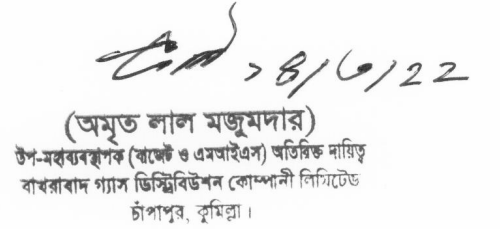 ১৪/৬/২২
(অমৃত লাল মজুমদার)
উপ-মহাব্যবস্থাপক (বাজেট ও এমআইএস) অতিরিক্ত দায়িত্ব
বাখরাবাদ গ্যাস ডিস্ট্রিবিউশন কোম্পানী লিমিটেড
চাঁপাপুর, কুমিল্লা।